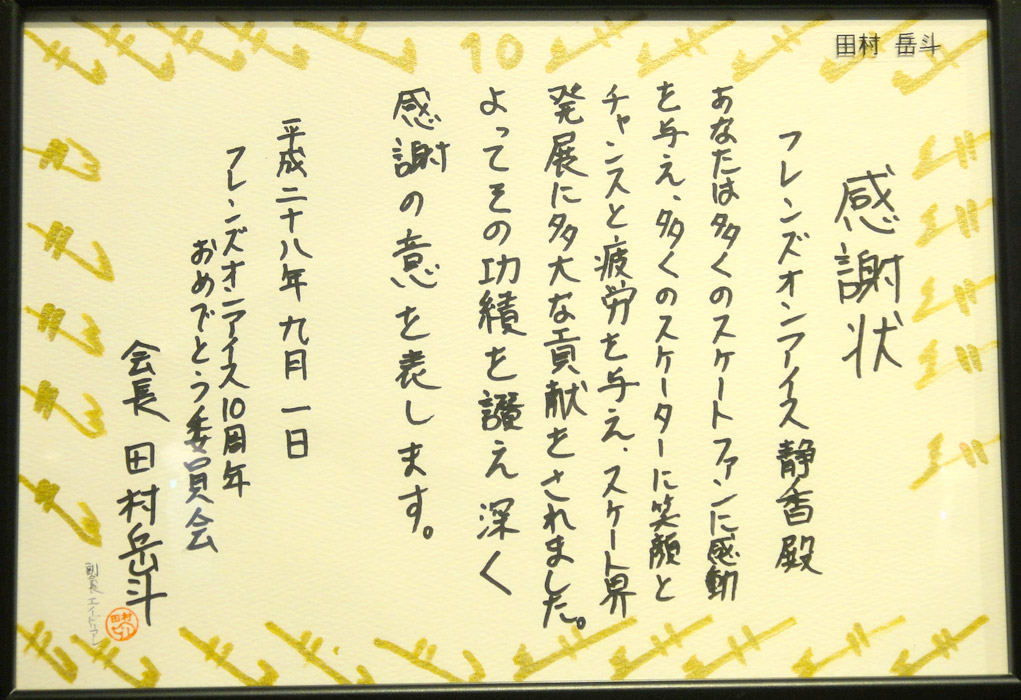 10
田村 岳斗
感謝状
フレンズオンアイス 静香殿
あなたは多くのスケートファンに感動
を与え、多くのスケーターに笑顔と
チャンスと疲労を与え、スケート界
発展に多大な貢献をされました。
よってその功績を讃え深く
感謝の意を表します。
平成二十八年 九月 一日
フレンズオンアイス10周年
おめでとう委員会
会長 田村岳斗
副会長 エイドリアン
田村